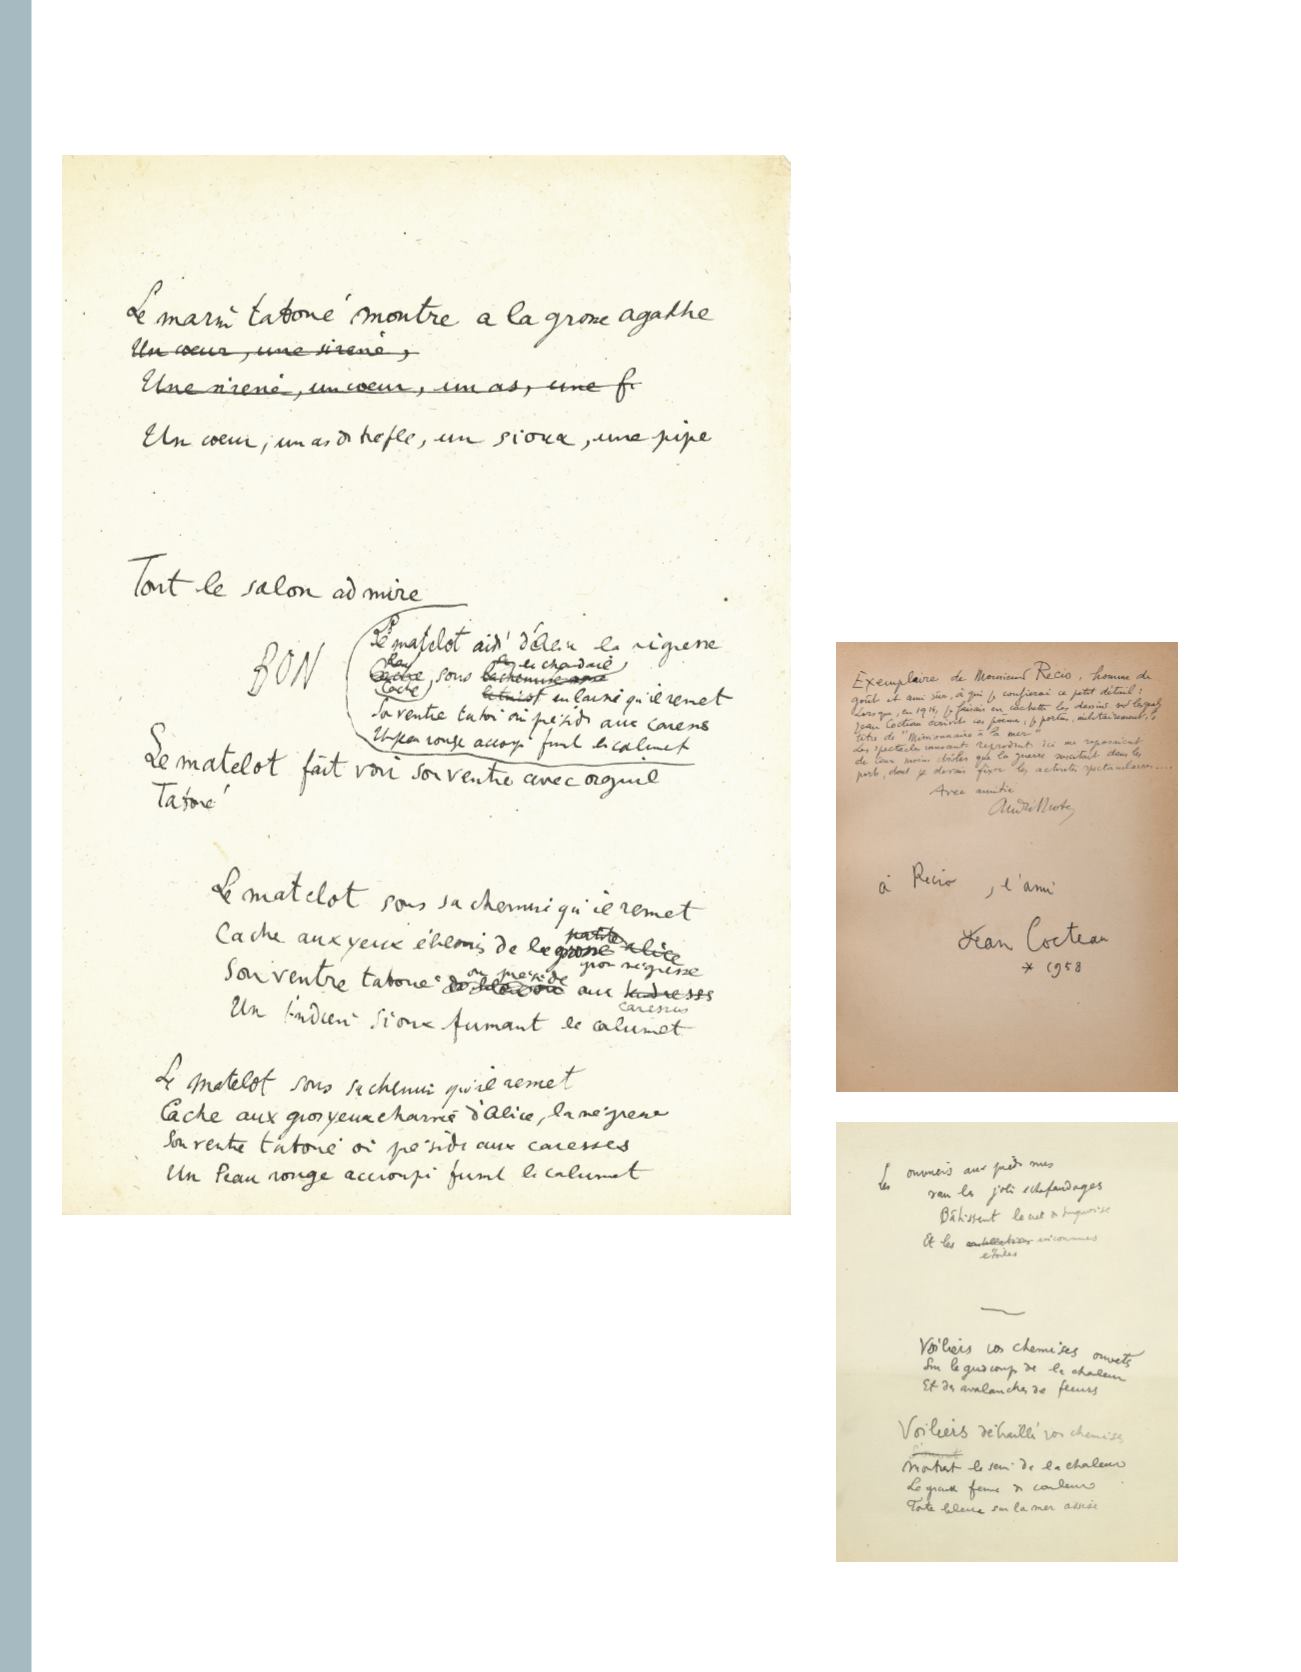 Le marin tatoué montre a la grosse agathe
Un coeur, une sirène,
Une sirène, un coeur, un as, une f
Un coeur, un as de trefle, un sioux, une pipe
Tout le salon admire
BON
Le matelot d'Alice la négresse
Cache, sous
qu'il remet
Son ventre tatoué où préside aux caresses
Un peau rouge accroupi fume le calumet
Le matelot fait voir son ventre avec orgueil
Tatoué
Le matelot sous sa chemise qu'il remet
Cache aux yeux éblouis de la grosse alice
petite
négresse
Son ventre tatoué où préside aux
caresses
Un indien sioux fumant le calumet
Le matelot sous sa chemise qu'il remet
Cache aux gros yeux charmés d'Alice, la négresse
Son ventre tatoué où préside aux caresses
Un Peau rouge accroupi fume le calumet
Exemplaire de Monsieur Recio, homme de
goût et ami sûr, à qui je confierai ce petit détail :
Lorsque, en 1916, je faisais en cachette les dessins sur lesquels
Jean Cocteau écrivit ces poèmes, je portais, militairement, le
titre de "Missionnaire à la mer"
Les spectacles innocents reproduits ici me reposaient
de ceux moins drôles que la guerre suscitait dans les
ports, dont je devais fixer les activités spectaculaires....
Avec amitié
à Recio, l'ami
Jean Cocteau
* 1958
Les ouvriers aux pieds nus
sur les jolis échafaudages
Bâtissent le ciel de turquoise
Et les inconnues
étoiles
Voiliers vos chemises ouvertes
Sur le de la chaleur
Et des avalanches de fleurs
Voiliers débraillés vos chemises
Montrent le sein de la chaleur
La grande femme de couleur
Toute bleue sur la mer assise